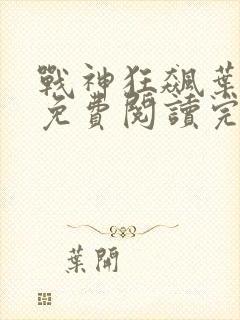 戰神狂飆葉
免費閱讀完
葉開